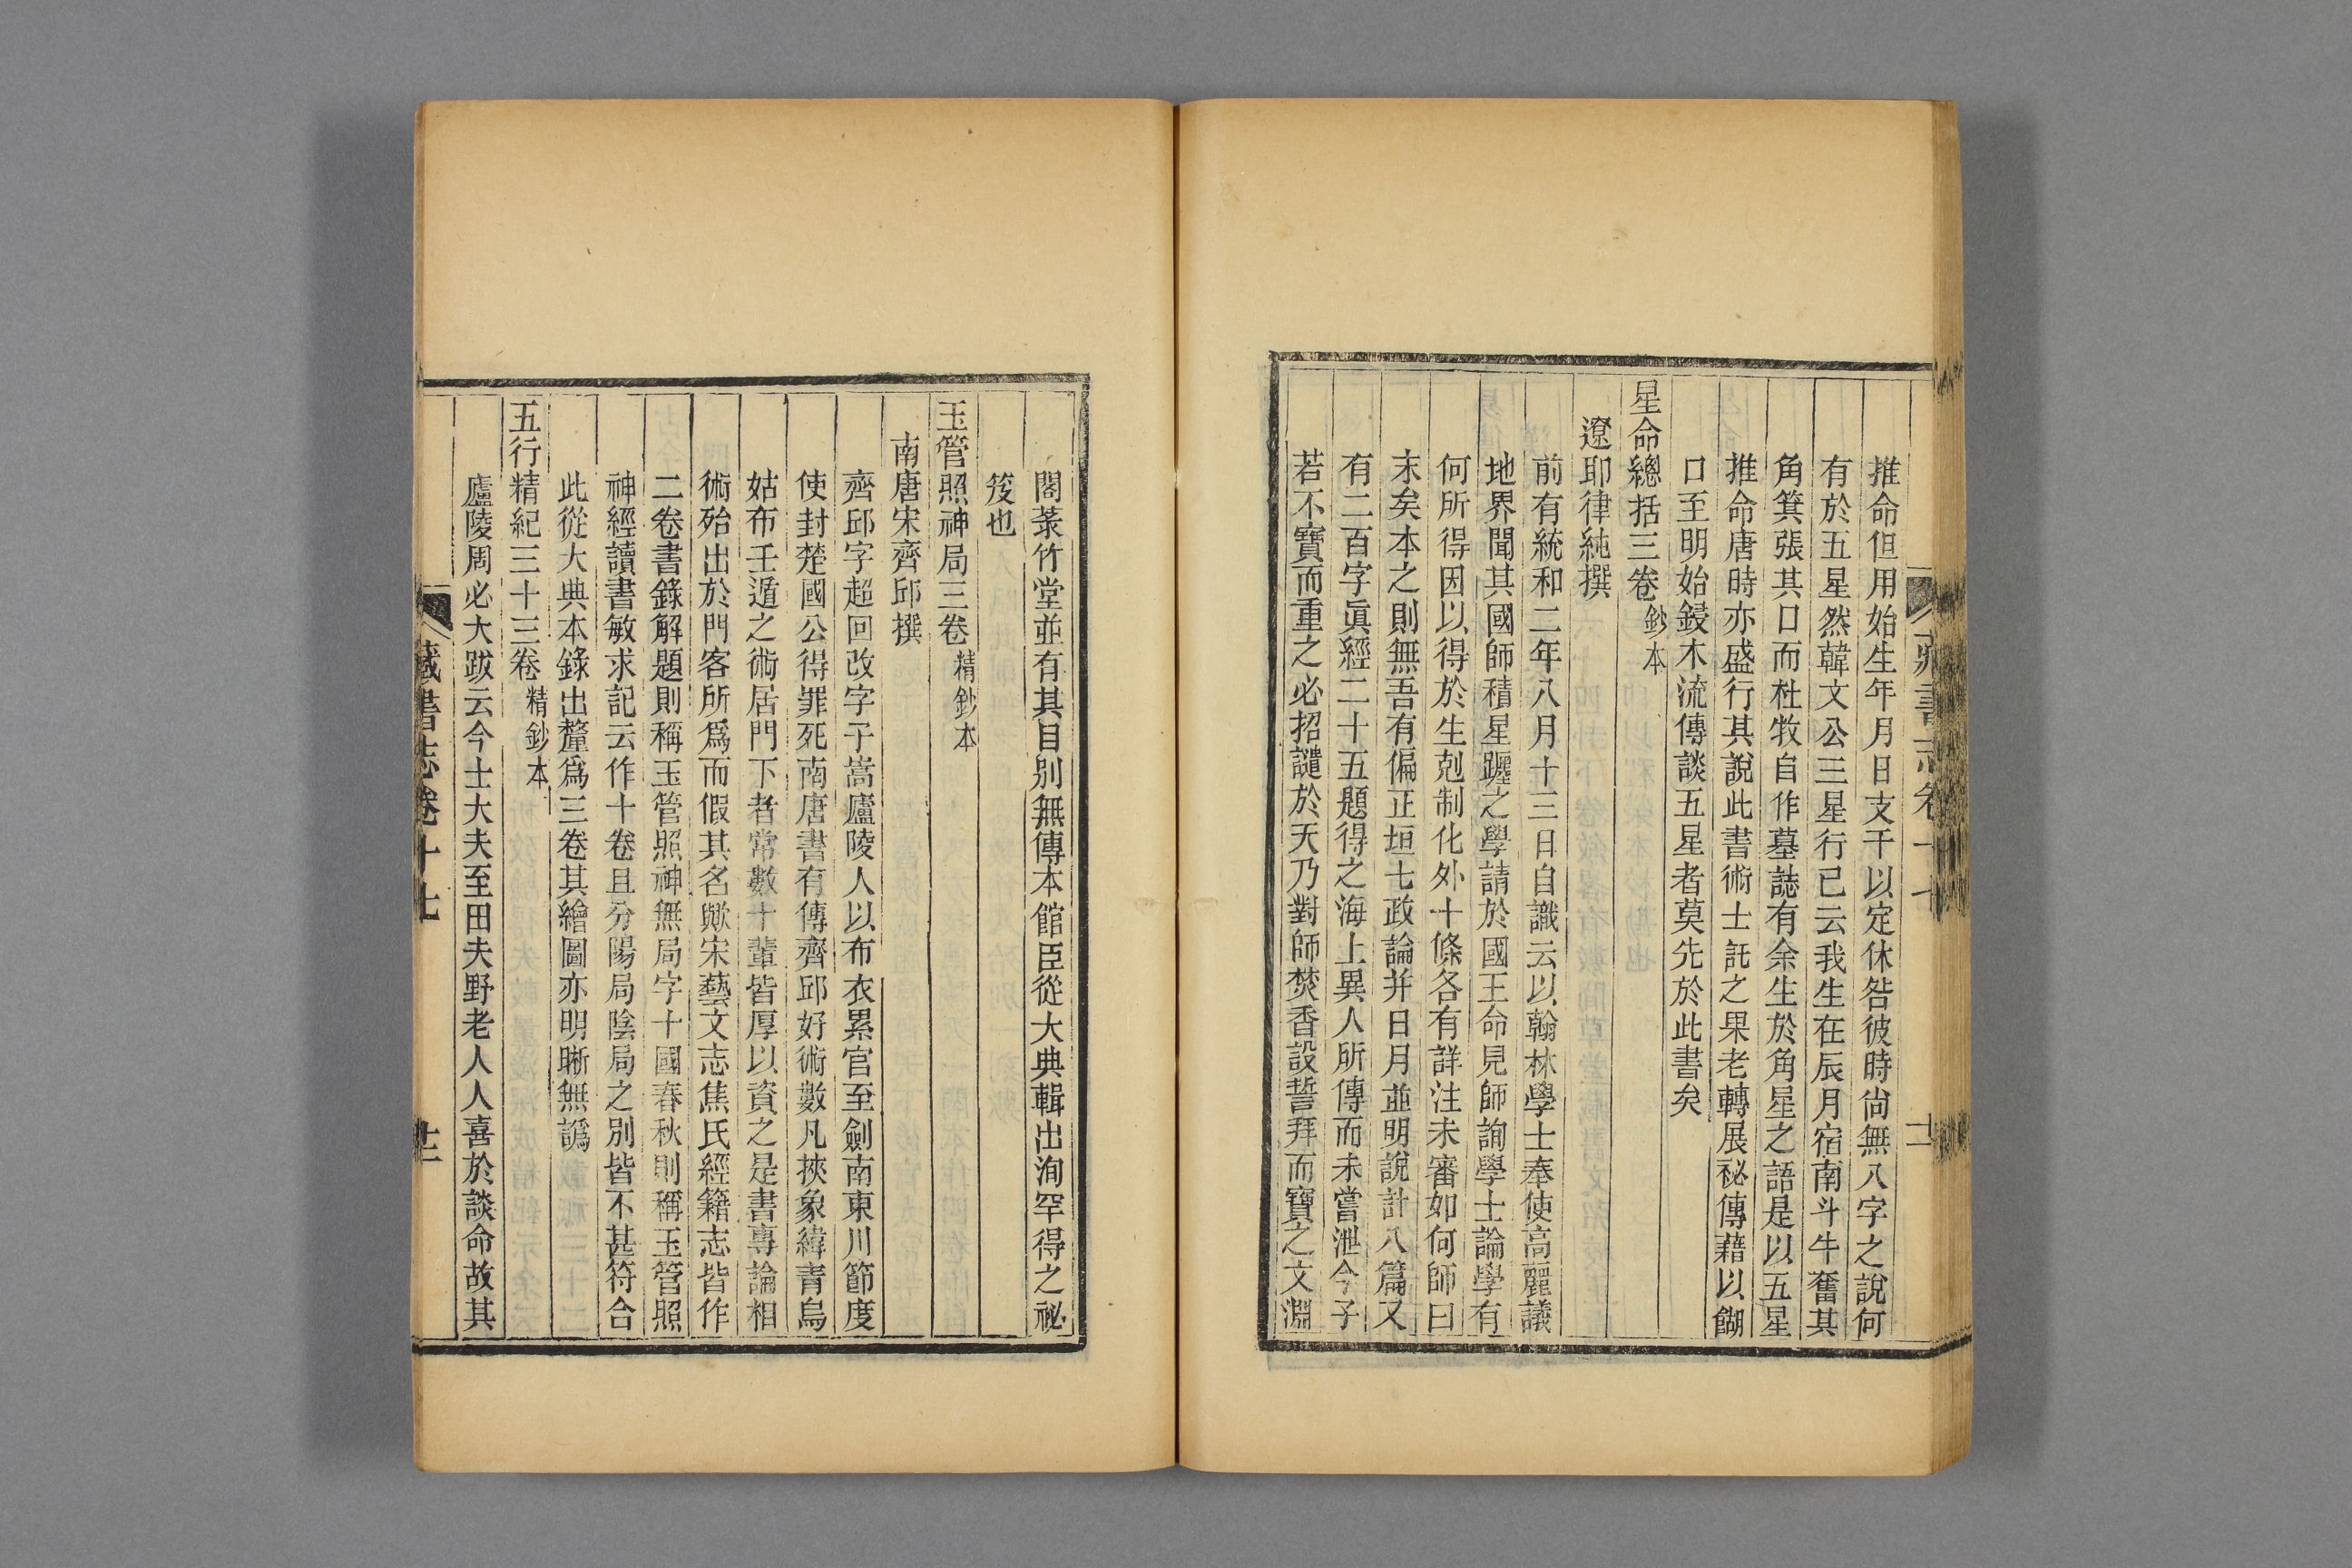 推命但用始生年月日支干以定休咎彼時尙無八字之說何
有於五星然韓文公三星行已云我生在辰月宿南斗牛奮其
角箕張其口而杜牧自作墓誌有余生於角星之語是以五星
推命唐時亦盛行其說此書術士託之果老轉展祕傳藉以餬
口至明始鋟木流傳談五星者莫先於此書矣
星命總括三卷鈔本
遼耶律純撰
前有統和二年八月十三日自識云以翰林學士奉使高麗議
地界聞其國師積星躔之學請於國王命見師詢學士論學有
何所得因以得於生剋制化外十條各有詳注未審如何師曰
末矣本之則無吾有偏正垣七政論并日月並明說計八篇又
有二百字眞經二十五題得之海上異人所傳而未嘗泄今子
若不寶而重之必招譴於天乃對師焚香設誓拜而寶之文淵
閣菉竹堂並有其目別無傳本館臣從大典輯出洵罕得之祕
笈也
玉管照神局三卷精鈔本
南唐宋齊邱撰
齊邱字超回改字子嵩廬陵人以布衣累官至劍南東川節度
使封楚國公得罪死南唐書有傳齊邱好術數凡挾象緯青烏
姑布壬遁之術居門下者常數十輩皆厚以資之是書專論相
術殆出於門客所爲而假其名歟宋藝文志焦氏經籍志皆作
二卷書錄解題則稱玉管照神無局字十國春秋則稱玉管照
神經讀書敏求記云作十卷且分陽局陰局之別皆不甚符合
此從大典本錄出釐爲三卷其繪圖亦明晣無譌
五行精紀三十三卷精鈔本
廬陵周必大跋云今士大夫至田夫野老人人喜於談命故其
藏書志卷十七